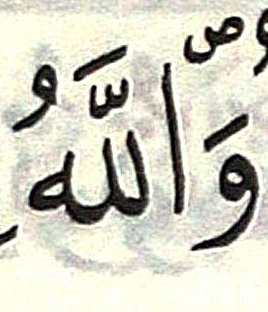 وَّاللّٰهُ